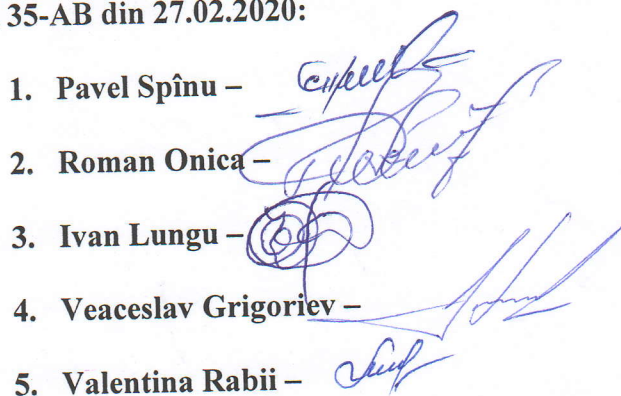 35-AB din 27.02.2020:
1. Pavel Spînu –
2. Roman Onica –
3. Ivan Lungu –
4. Veaceslav Grigoriev –
5. Valentina Rabii –